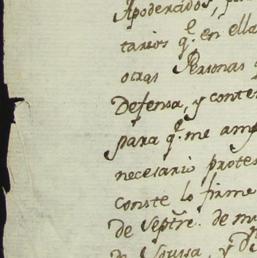 Apoderados,
tarios q.e en ella
otras Personas
Defensa, y conte
para q.e me am
necesario protes
conste lo firme
de Septre. de m
de Soussa, y D